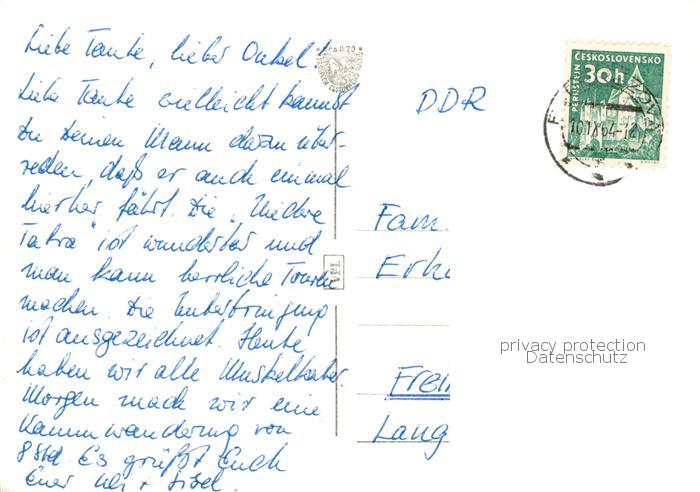 Liebe Tante, lieber Onkel!
Liebe Tante vielleicht kannst
Du Deinen Mann dazu über-
reden, daß er auch einmal
hierher fährt. Die „Niedere
Tatra" ist wunderbar und
man kann herrliche Touren
machen. Die Unterbringung
ist ausgezeichnet. Heute
haben wir alle Muskelkater
Morgen mach wir eine
Kammwanderung von
8 Std. Es grüßt Euch
Euer +
Kčs 0.20
VPL
DDR
Fam.
Erk
Frei
Lang
ČESKOSLOVENSKO
30h
PERNŠTEJN
10.IX.64-12
privacy protection
Datenschutz